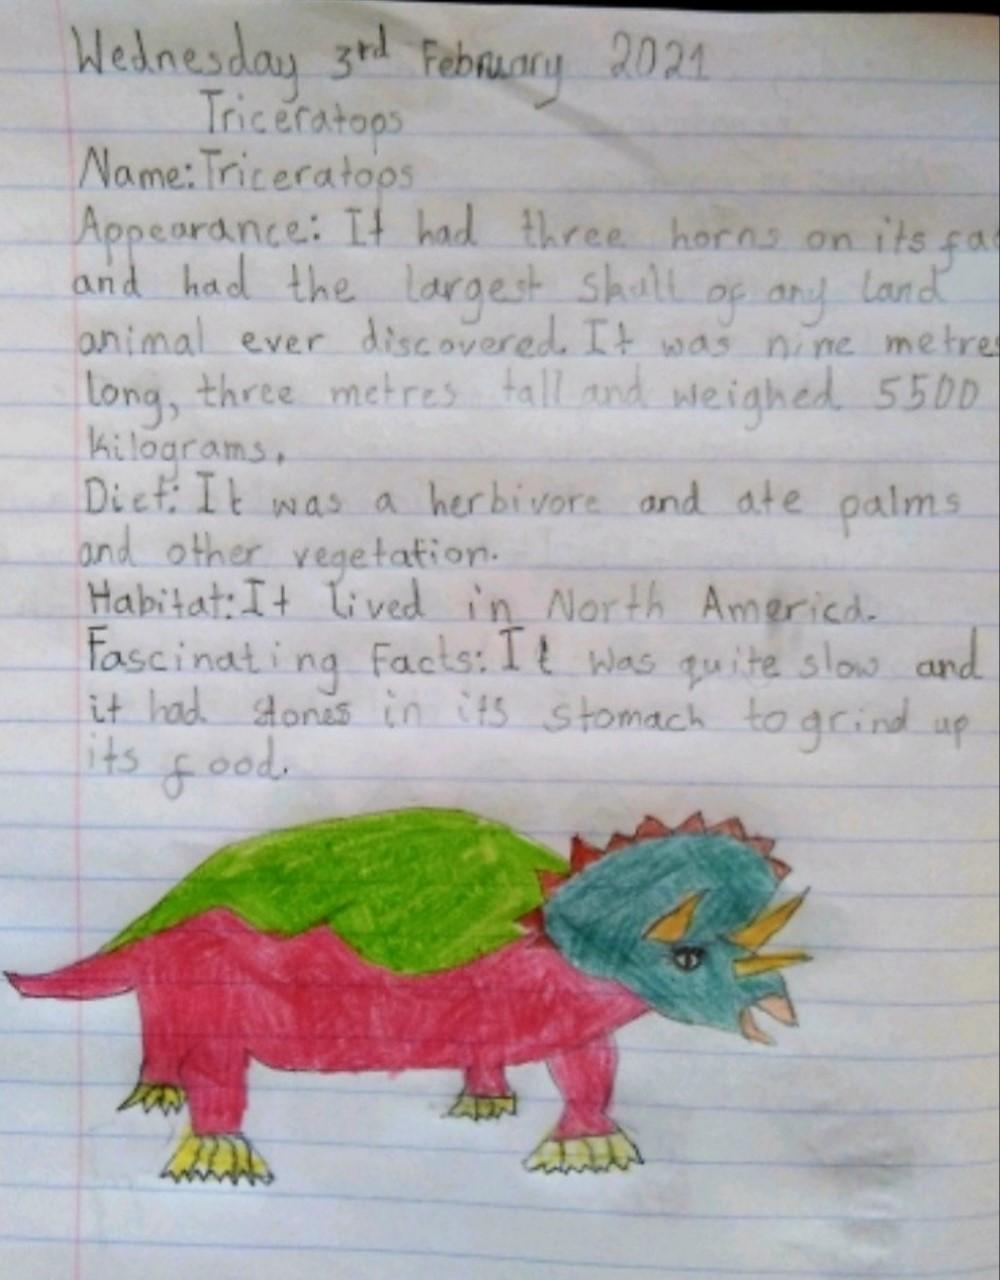 Wednesday 3rd February 2021
Triceratops
Name: Triceratops
Appearance: It had three horns on its fa
and had the largest skull of any land
animal ever discovered. It was nine metres
long, three metres tall and weighed 5500
kilograms.
Diet: It was a herbivore and ate palms
and other vegetation.
Habitat: It lived in North America.
Fascinating Facts: It was quite slow and
it had stones in its stomach to grind up
its food.